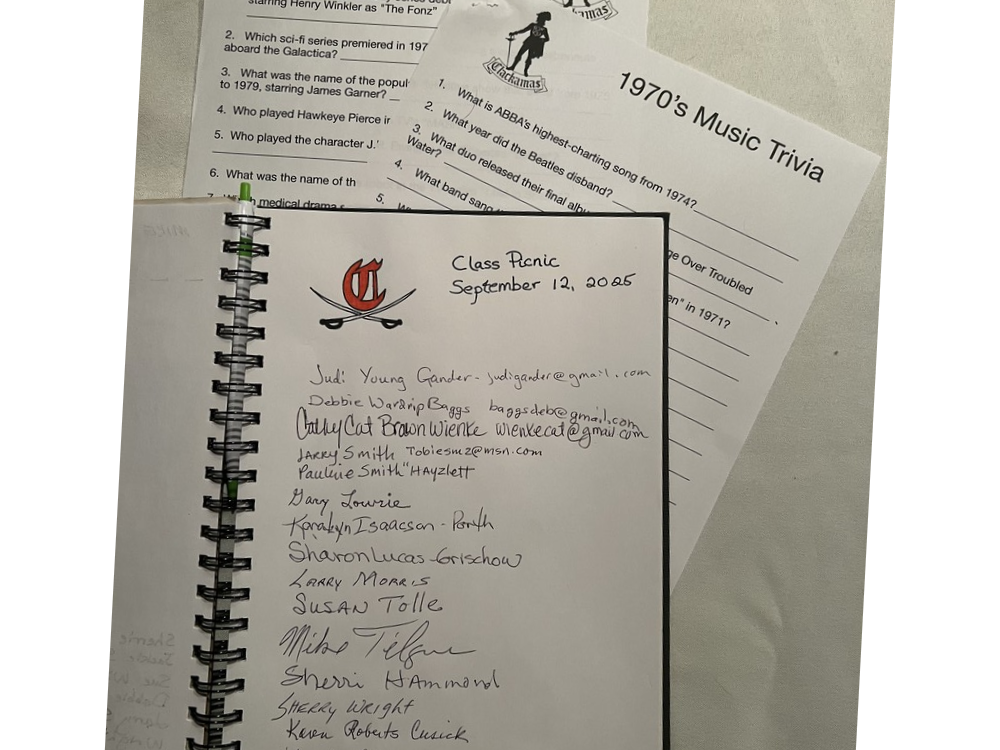 starring Henry Winkler as "The Fonz"
2. Which sci-fi series premiered in 197
aboard the Galactica?
3. What was the name of the popul
to 1979, starring James Garner?
4. Who played Hawkeye Pierce ir
5. Who played the character J.'
6. What was the name of th
medical drama
Clackamas
1970's Music Trivia
1. What is ABBA's highest-charting song from 1974?
2. What year did the Beatles disband?
3. What duo released their final albu
ge Over Troubled
Water?
4. What band sang
en" in 1971?
5.
C
Class Picnic
September 12, 2025
Judi Young Gander - judigander@gmail.com
Debbie Wardrip Baggs baggsdeb@gmail.com
Cathy Cat Brown Wienke wienkecat@gmail.com
Larry Smith Tobiesmz@msn.com
Pauline Smith "Hayzlett
Gary Lowrie
Isaacson - Porth
Sharon Lucas-Grischow
Larry Morris
Susan Tolle
Mike
Sherri Hammond
Sherry Wright
Karen Roberts Cusick